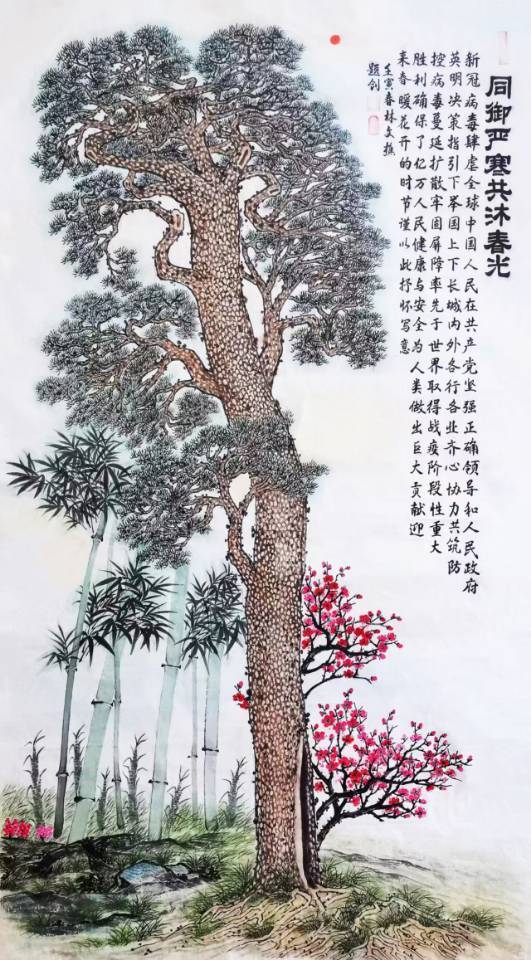 同御严寒共沐春光
新冠病毒肆虐全球中国人民在共产党坚强正确领导和人民政府
英明决策指引下举国上下长城内外各行各业齐心协力共筑防
控病毒蔓延扩散牢固屏障率先于世界取得战疫阶段性重大
胜利确保了亿万人民健康与安全为人类做出巨大贡献迎
来春暖花开的时节谨以此抒怀写意
壬寅春林文
题剑